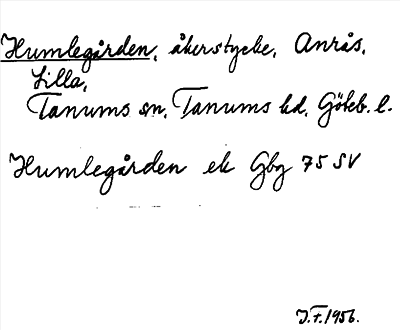 Humlegården, åkerstycke, Anrås,
Lilla,
Tanums sn, Tanums hd, Göteb. l.
Humlegården ek Gbg 75 SV
J.F. 1956.